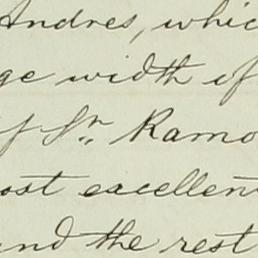 Andres, whic
ge width of
of Sr. Ramo
ost excellen
and the rest